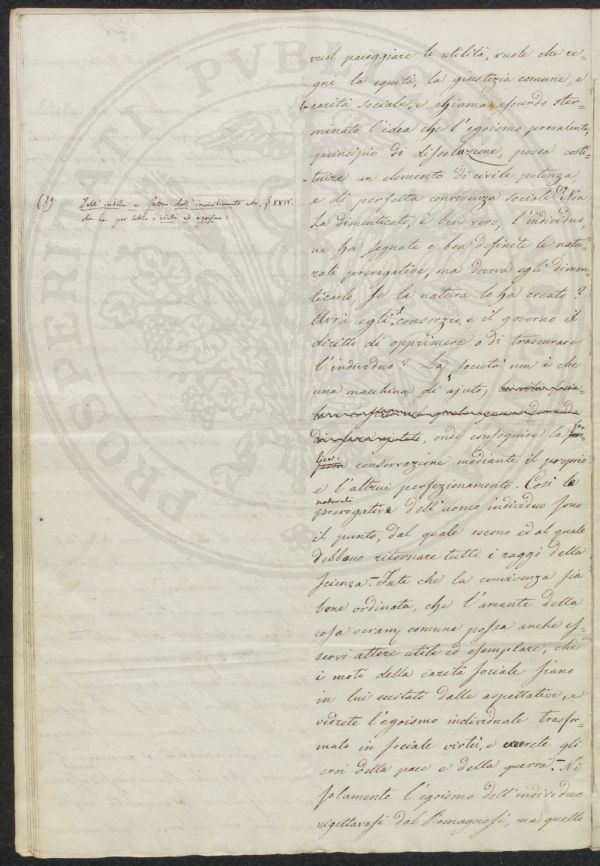 vuol pareggiare le utilità, vuole che re=
gni la equità, la giustizia comune, e
la carità sociale, e chiama assurdo ster=
minato l'idea che l'egoismo prevalente,
principio di dissoluzione, possa costi=
tuire un elemento di civile potenza
e di perfetta convivenza sociale (19 Non
ha dimenticato, è ben vero, l'individuo,
ne ha segnate e ben definite le natu=
rali prerogative, ma doveva egli dimen=
ticarlo, se la natura lo ha creato?
Avrà egli il consorzio, e il governo il
diritto di opprimere o di trascurare
l'individuo? La società non è che
una macchina di ajuto,
onde conseguire la
conservazione mediante il proprio
e l'altrui perfezionamento. Così le
naturali
prerogative dell'uomo individuo sono
il punto, dal quale escono ed al quale
debbono ritornare tutti i raggi della
scienza — Fate che la convivenza sia
bene ordinata, che l'amante della
cosa veram. comune possa anche es=
servi attore utile ed esemplare, che
i moti della carità sociale siano
in lui eccitati dalle aspettative, e
vedrete l'egoismo individuale trasfor=
mato in sociale virtù, e avrete gli
eroi della pace e della guerra — Nè
solamente l'egoismo dell'individuo
rigettavasi dal Romagnosi, ma quello
(19 Dell' indole e fattori dell' incivilimento § XXIV.
che ha per titolo = virtù ed egoismo =
PROSPERITATI PVBLI